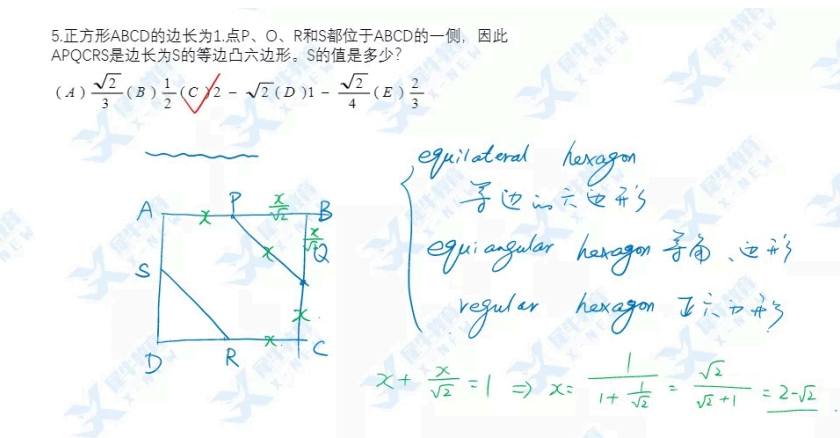 5.正方形ABCD的边长为1.点P、O、R和S都位于ABCD的一侧，因此
APQCRS是边长为S的等边凸六边形。S的值是多少?
(A) √2/3 (B) 1/2 (C) 2 - √2 (D) 1 - √2/4 (E) 2/3
equilateral hexagon
等边的六边形
equiangular hexagon 等角、边形
regular hexagon 正六边形
A x P x/√2 B
x/√2
S x Q
x
D R x C
x + x/√2 = 1 ⇒ x = 1/(1 + 1/√2) = √2/(√2 + 1) = 2-√2
犀牛教育
X-NEW